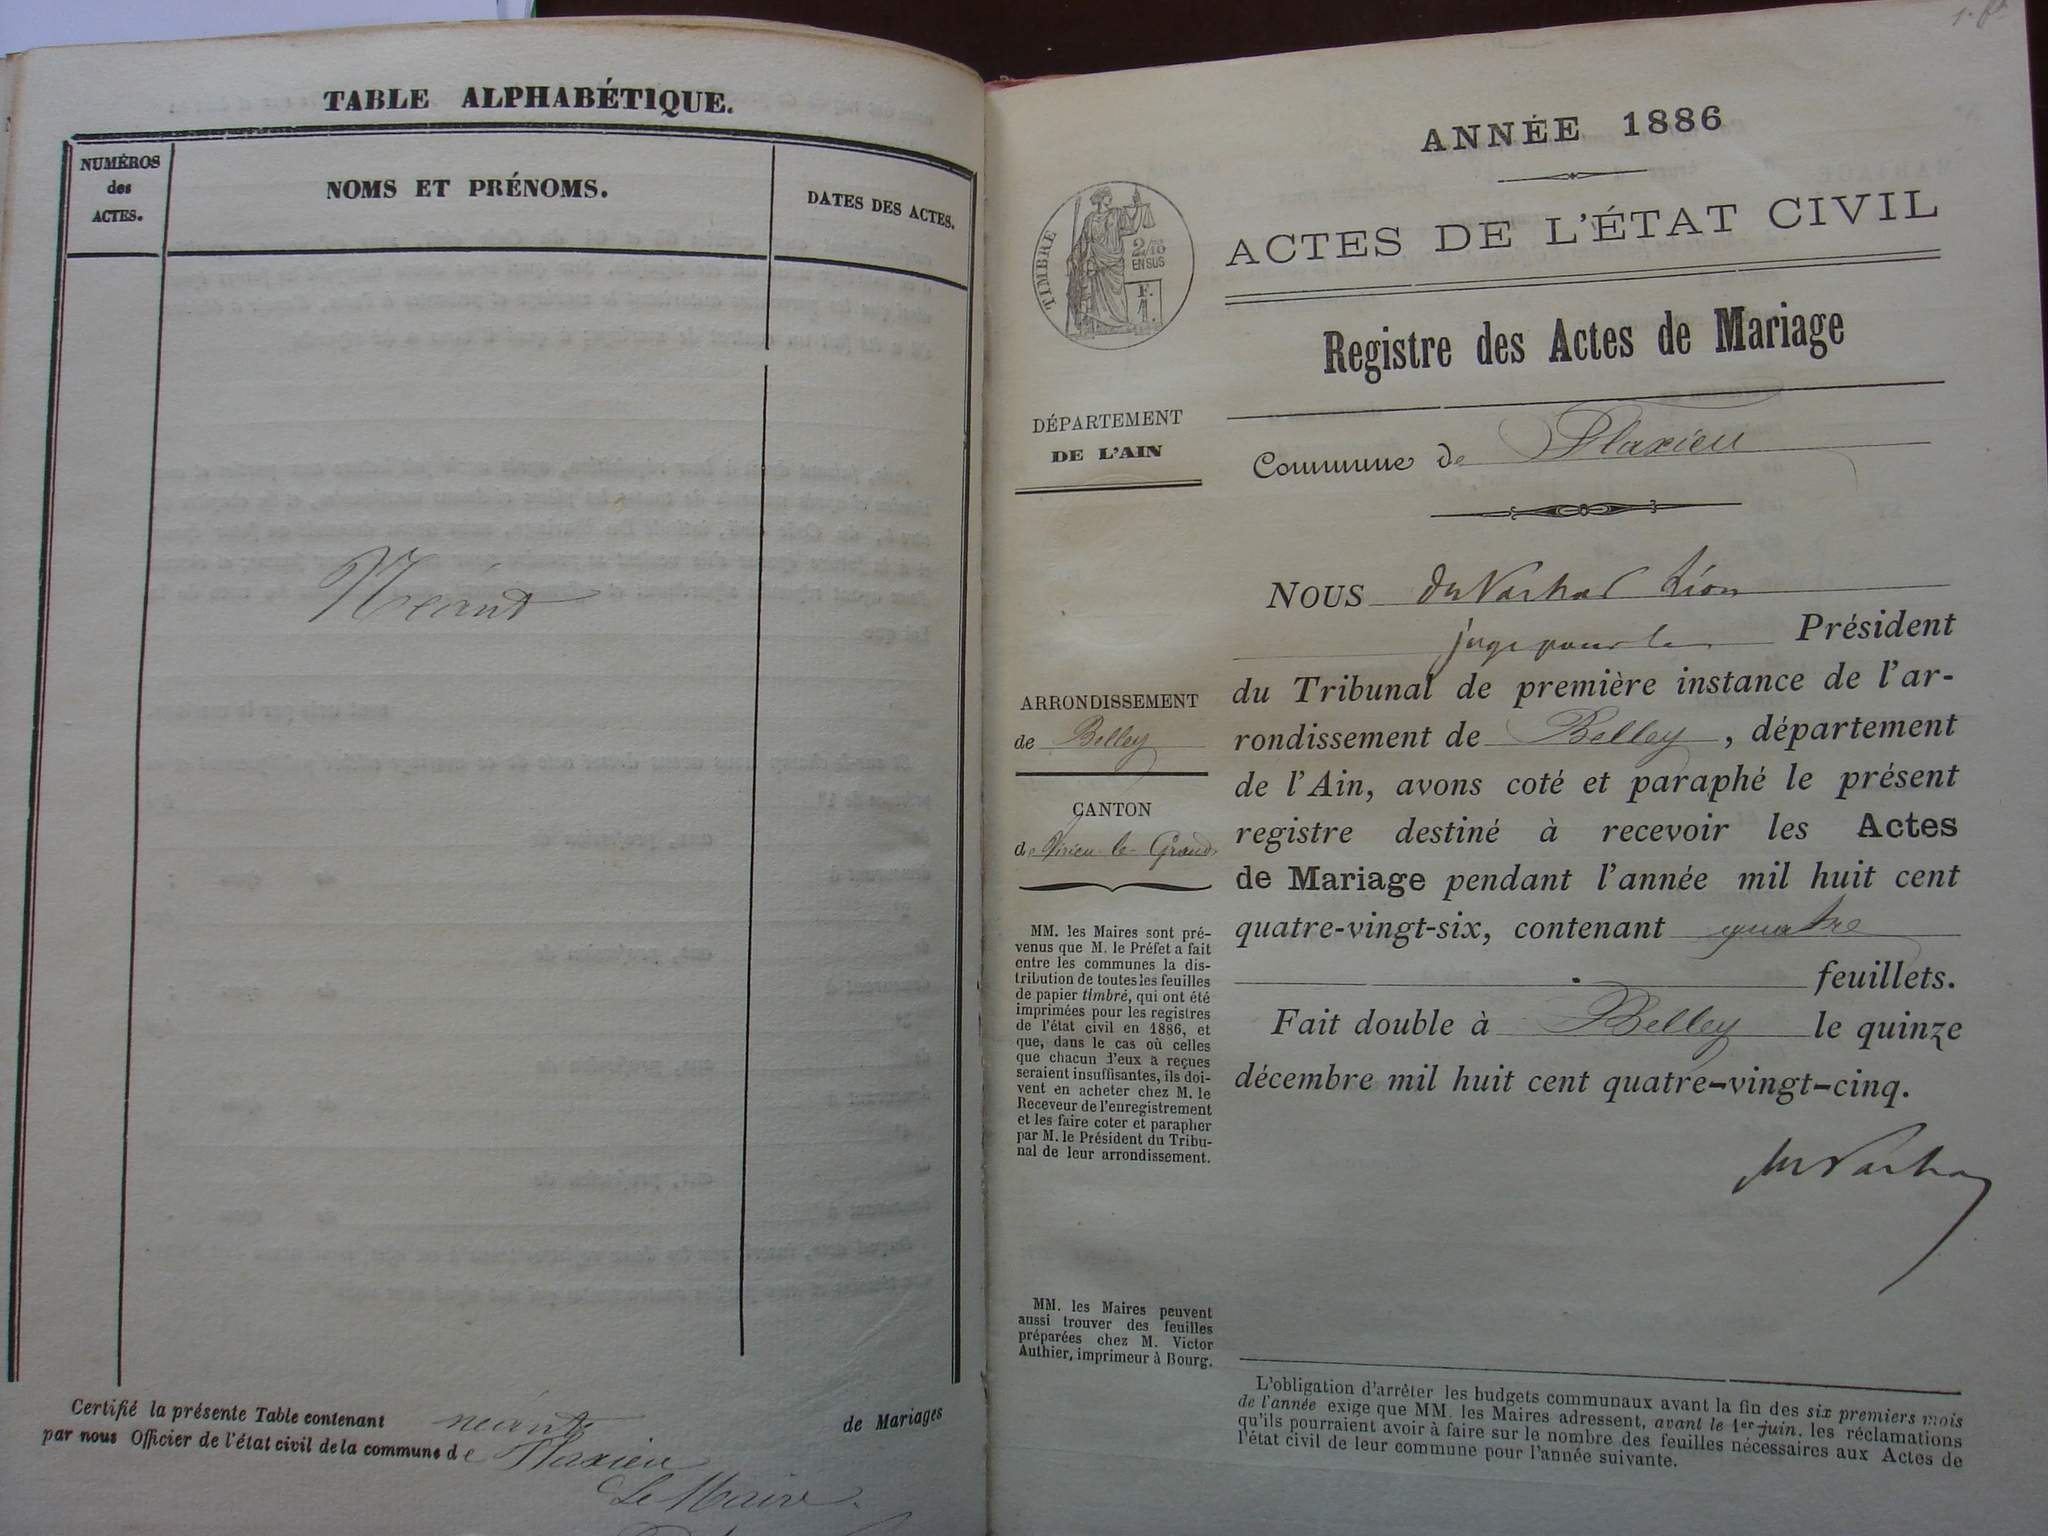 TABLE ALPHABÉTIQUE.
NUMÉROS
des
ACTES.
NOMS ET PRÉNOMS.
DATES DES ACTES.
Néant
Certifié la présente Table contenant néant de Mariages
par nous Officier de l'état civil de la commune de Flaxieu
Le Maire
1. ft
ANNÉE 1886
ACTES DE L'ÉTAT CIVIL
TIMBRE
2/10
EN SUS
F.
1.
Registre des Actes de Mariage
DÉPARTEMENT
DE L'AIN
Commune de Flaxieu
ARRONDISSEMENT
de Belley
CANTON
de Virieu-le-Grand
MM. les Maires sont pré-
venus que M. le Préfet a fait
entre les communes la dis-
tribution de toutes les feuilles
de papier timbré, qui ont été
imprimées pour les registres
de l'état civil en 1886, et
que, dans le cas où celles
que chacun d'eux a reçues
seraient insuffisantes, ils doi-
vent en acheter chez M. le
Receveur de l'enregistrement
et les faire coter et parapher
par M. le Président du Tribu-
nal de leur arrondissement.
MM. les Maires peuvent
aussi trouver des feuilles
préparées chez M. Victor
Authier, imprimeur à Bourg.
NOUS Léon
juge pour le Président
du Tribunal de première instance de l'ar-
rondissement de Belley, département
de l'Ain, avons coté et paraphé le présent
registre destiné à recevoir les Actes
de Mariage pendant l'année mil huit cent
quatre-vingt-six, contenant quatre
feuillets.
Fait double à Belley le quinze
décembre mil huit cent quatre-vingt-cinq.
L'obligation d'arrêter les budgets communaux avant la fin des six premiers mois
de l'année exige que MM. les Maires adressent, avant le 1er juin, les réclamations
qu'ils pourraient avoir à faire sur le nombre des feuilles nécessaires aux Actes de
l'état civil de leur commune pour l'année suivante.